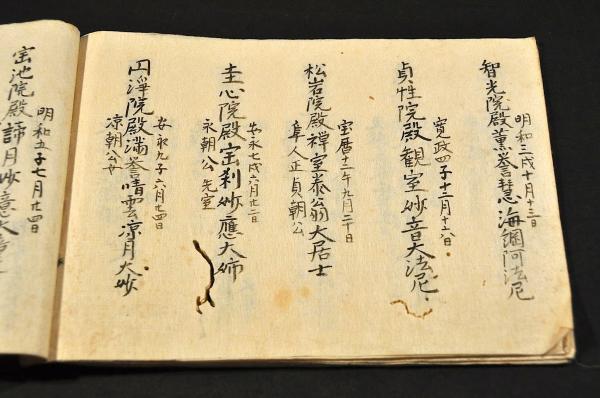 明和三戌十月十三日
智光院殿薫誉慧海鏆阿法尼
寛政四子十二月十六日
貞性院殿観室妙音大法尼
宝暦十二午九月二十日
松岩院殿禅室泰翁大居士
隼人正貞朝公
安永七戌六月廿二日
圭心院殿宝刹妙應大姉
永朝公先室
安永九子六月廿四日
円浄院殿満誉晴雲凉月大妙
凉朝公母
明和五子七月廿四日
宝池院殿諦月妙意大